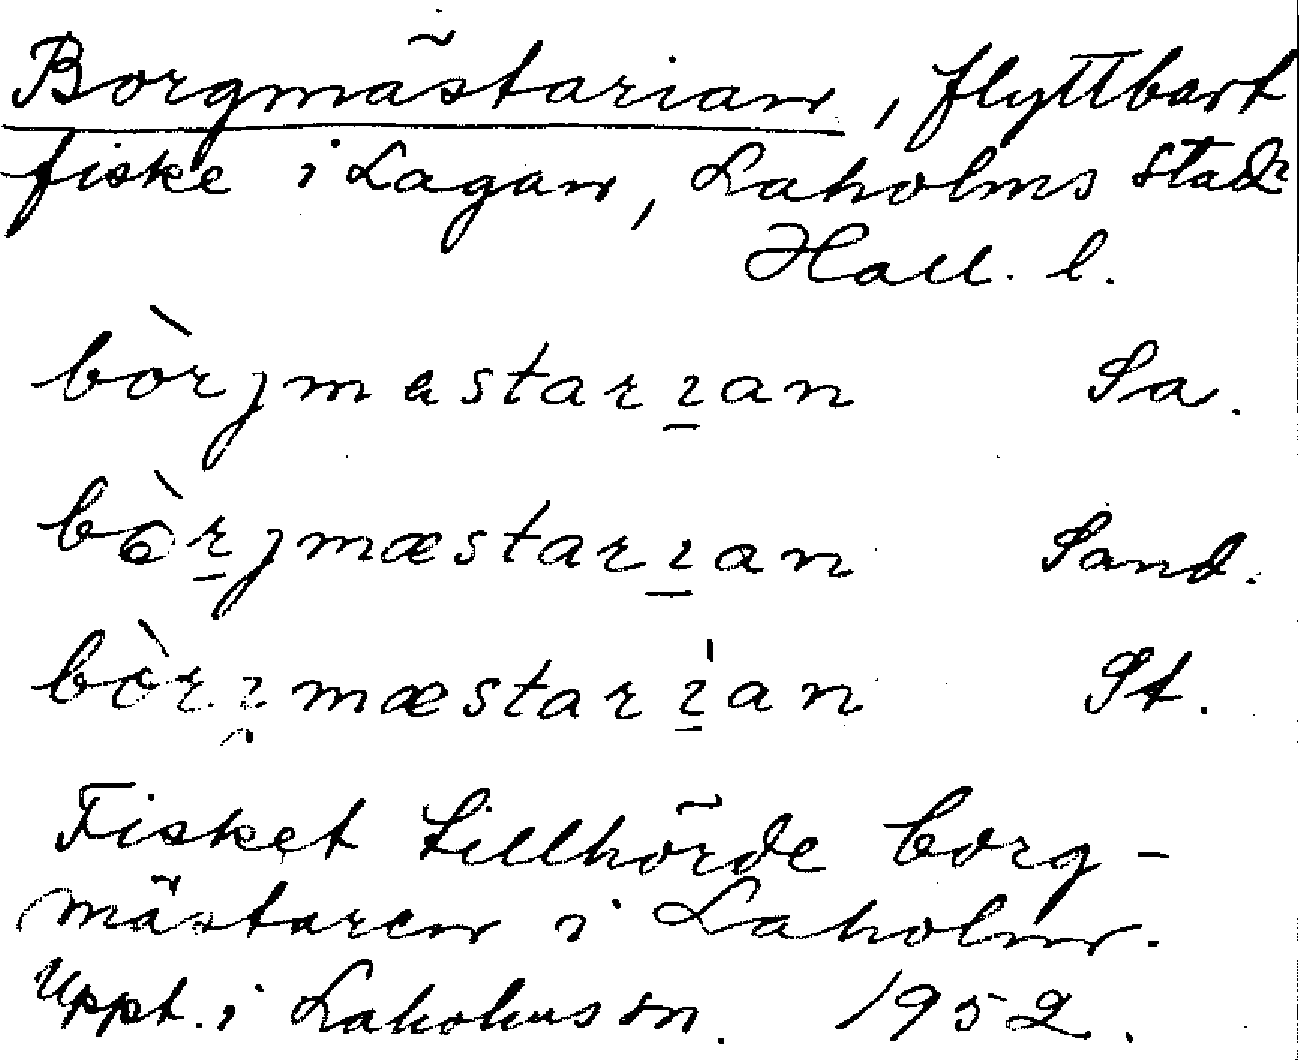 Borgmästarian, flyttbart
fiske i Lagan, Laholms stad
Hall. l.
bòrjmæstarıan Sa.
bòrjmæstarıan Sand.
bòrımæstarıan St.
Fisket tillhörde borg-
mästaren i Laholm.
Uppt. i Laholms sn. 1952.